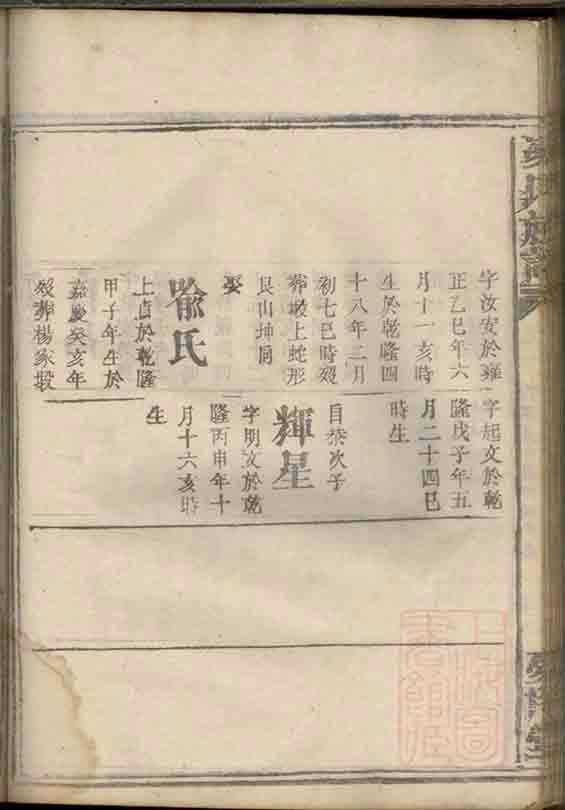 氏族譜
字汝安於雍
正乙巳年六
月十一亥時
生於乾隆四
十八年二月
初七巳時歿
葬塅上蛇形
艮山坤向
娶
喻氏
上貞於乾隆
甲子年生於
嘉慶癸亥年
歿葬楊家塅
字起文於乾
隆戊子年五
月二十四巳
時生
自恭次子
輝星
字明文於乾
隆丙申年十
月十六亥時
生
上海圖
書館藏